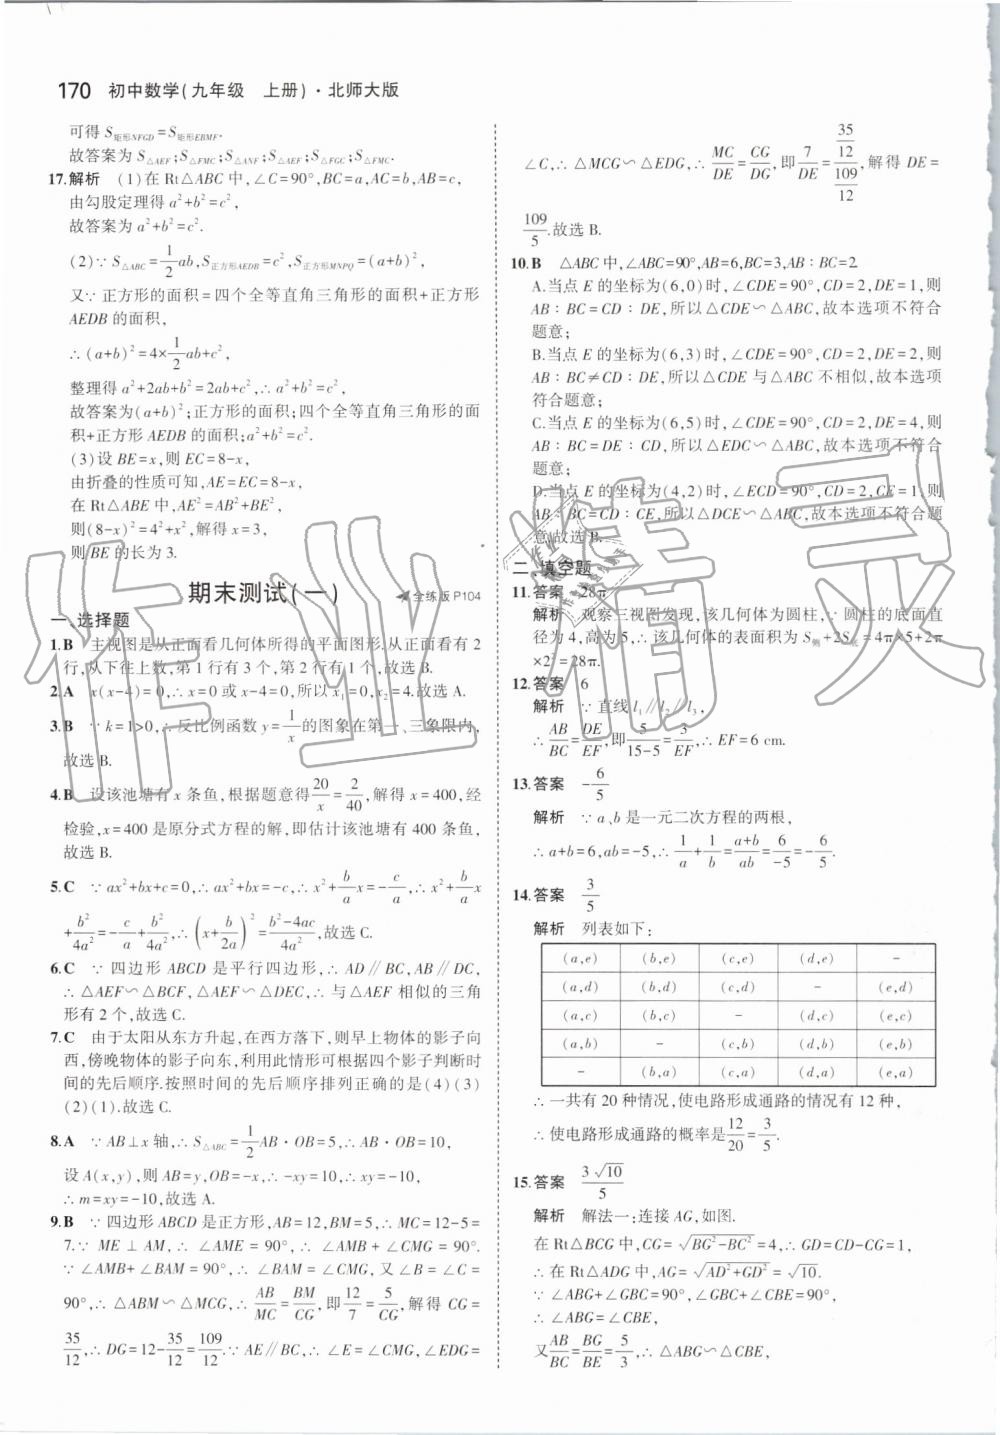 170 初中数学(九年级 上册)·北师大版
可得 S矩形NFGD=S矩形EBMF.
故答案为 S△AEF;S△FMC;S△ANF;S△AEF;S△FGC;S△FMC.
17.解析 (1)在 Rt△ABC 中,∠C=90°,BC=a,AC=b,AB=c,
由勾股定理得 a²+b²=c²,
故答案为 a²+b²=c².
(2)∵ S△ABC=1/2ab,S正方形AEDB=c²,S正方形MNPQ=(a+b)²,
又∵ 正方形的面积=四个全等直角三角形的面积+正方形
AEDB 的面积,
∴(a+b)²=4×1/2ab+c²,
整理得 a²+2ab+b²=2ab+c²,∴a²+b²=c².
故答案为(a+b)²;正方形的面积;四个全等直角三角形的面
积+正方形 AEDB 的面积;a²+b²=c².
(3)设 BE=x,则 EC=8-x,
由折叠的性质可知,AE=EC=8-x,
在 Rt△ABE 中,AE²=AB²+BE²,
则(8-x)²=4²+x²,解得 x=3,
则 BE 的长为 3.
期末测试(一) 全练版P104
一、选择题
1.B 主视图是从正面看几何体所得的平面图形,从正面看有 2
行,从下往上数,第 1 行有 3 个,第 2 行有 1 个,故选 B.
2.A x(x-4)=0,∴x=0 或 x-4=0,所以 x₁=0,x₂=4.故选 A.
3.B ∵k=1>0,∴反比例函数 y=1/x的图象在第一、三象限内,
故选 B.
4.B 设该池塘有 x 条鱼,根据题意得20/x=2/40,解得 x=400,经
检验,x=400 是原分式方程的解,即估计该池塘有 400 条鱼,
故选 B.
5.C ∵ax²+bx+c=0,∴ax²+bx=-c,∴x²+b/a x=-c/a,∴x²+b/a x
+b²/4a²=-c/a+b²/4a²,∴(x+b/2a)²=(b²-4ac)/4a²,故选 C.
6.C ∵ 四边形 ABCD 是平行四边形,∴AD∥BC,AB∥DC,
∴△AEF∽△BCF,△AEF∽△DEC,∴与△AEF 相似的三角
形有 2 个,故选 C.
7.C 由于太阳从东方升起,在西方落下,则早上物体的影子向
西,傍晚物体的影子向东,利用此情形可根据四个影子判断时
间的先后顺序.按照时间的先后顺序排列正确的是(4)(3)
(2)(1).故选 C.
8.A ∵AB⊥x 轴,∴S△ABC=1/2AB·OB=5,∴AB·OB=10,
设 A(x,y),则 AB=y,OB=-x,∴-xy=10,∴xy=-10,
∴m=xy=-10,故选 A.
9.B ∵四边形 ABCD 是正方形,AB=12,BM=5,∴MC=12-5=
7.∵ ME⊥AM,∴∠AME=90°,∴∠AMB+∠CMG=90°.
∵∠AMB+∠BAM=90°,∴∠BAM=∠CMG,又∠B=∠C=
90°,∴△ABM∽△MCG,∴AB/MC=BM/CG,即12/7=5/CG,解得 CG=
35/12,∴DG=12-35/12=109/12.∵AE∥BC,∴∠E=∠CMG,∠EDG=
∠C,∴△MCG∽△EDG,∴MC/DE=CG/DG,即7/DE=(35/12)/(109/12),解得 DE=
109/5.故选 B.
10.B △ABC 中,∠ABC=90°,AB=6,BC=3,AB∶BC=2.
A.当点 E 的坐标为(6,0)时,∠CDE=90°,CD=2,DE=1,则
AB∶BC=CD∶DE,所以△CDE∽△ABC,故本选项不符合
题意;
B.当点 E 的坐标为(6,3)时,∠CDE=90°,CD=2,DE=2,则
AB∶BC≠CD∶DE,所以△CDE 与△ABC 不相似,故本选项
符合题意;
C.当点 E 的坐标为(6,5)时,∠CDE=90°,CD=2,DE=4,则
AB∶BC=DE∶CD,所以△EDC∽△ABC,故本选项不符合
题意;
D.当点 E 的坐标为(4,2)时,∠ECD=90°,CD=2,CE=1,则
AB∶BC=CD∶CE,所以△DCE∽△ABC,故本选项不符合题
意.故选 B.
二、填空题
11.答案 28π
解析 观察三视图发现,该几何体为圆柱,∵圆柱的底面直
径为 4,高为 5,∴该几何体的表面积为 S侧+2S底=4π×5+2π
×2²=28π.
12.答案 6
解析 ∵直线 l₁∥l₂∥l₃,
∴AB/BC=DE/EF,即5/(15-5)=3/EF,∴EF=6 cm.
13.答案 -6/5
解析 ∵a、b 是一元二次方程的两根,
∴a+b=6,ab=-5,∴1/a+1/b=(a+b)/ab=6/-5=-6/5.
14.答案 3/5
解析 列表如下:
(a,e) (b,e) (c,e) (d,e) -
(a,d) (b,d) (c,d) - (e,d)
(a,c) (b,c) - (d,c) (e,c)
(a,b) - (c,b) (d,b) (e,b)
- (b,a) (c,a) (d,a) (e,a)
∴一共有 20 种情况,使电路形成通路的情况有 12 种,
∴使电路形成通路的概率是12/20=3/5.
15.答案 3√10/5
解析 解法一:连接 AG,如图.
在 Rt△BCG 中,CG=√(BG²-BC²)=4,∴GD=CD-CG=1,
∴在 Rt△ADG 中,AG=√(AD²+GD²)=√10.
∵∠ABG+∠GBC=90°,∠GBC+∠CBE=90°,
∴∠ABG=∠CBE,
又AB/BC=BG/BE=5/3,∴△ABG∽△CBE,
作业精灵